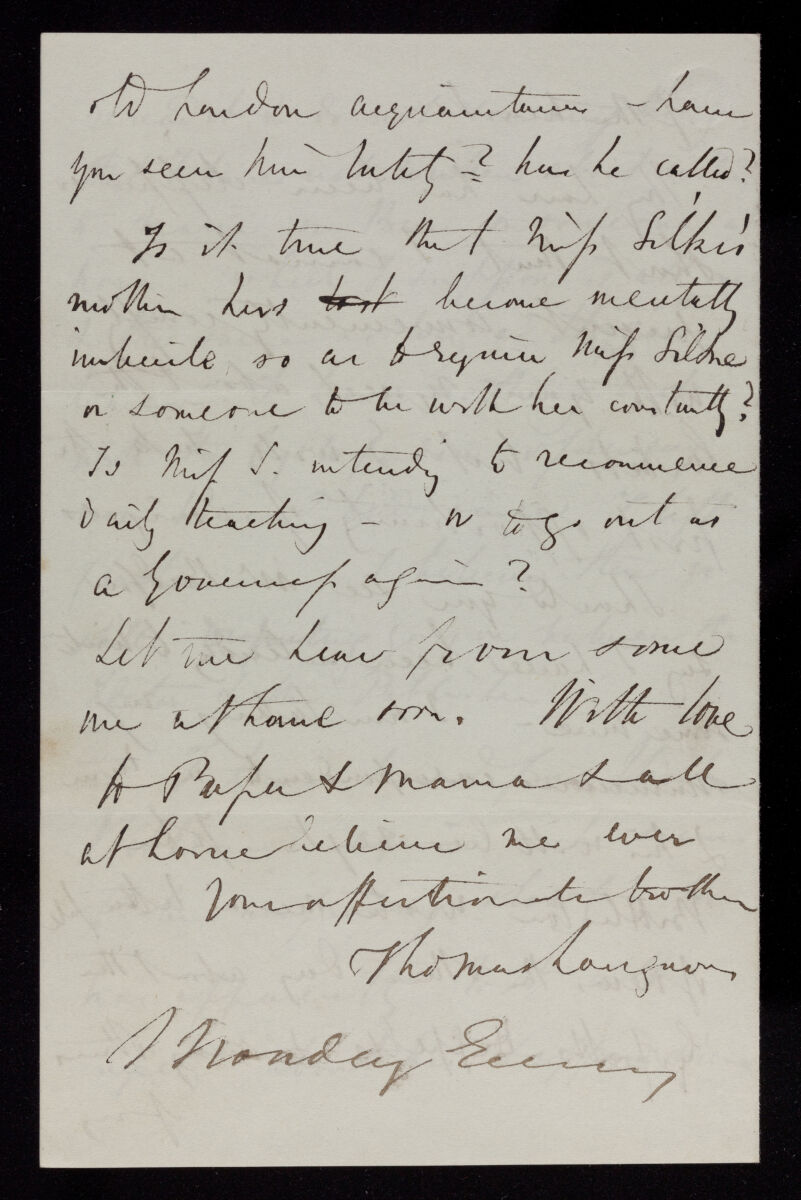 old London acquaintances – have
you seen him lately? has he called?
Is it true that Miss Silke's
mother has become mentally
imbecile, so as to require Miss Silke
or someone to be with her constantly?
Is Miss S. intending to recommence
daily teaching – or to go out as
a Governess again?
Let me hear from some
one at home soon. With love
to Papa & Mama & all
at home believe me ever
your affectionate brother
Thomas
Monday Evening